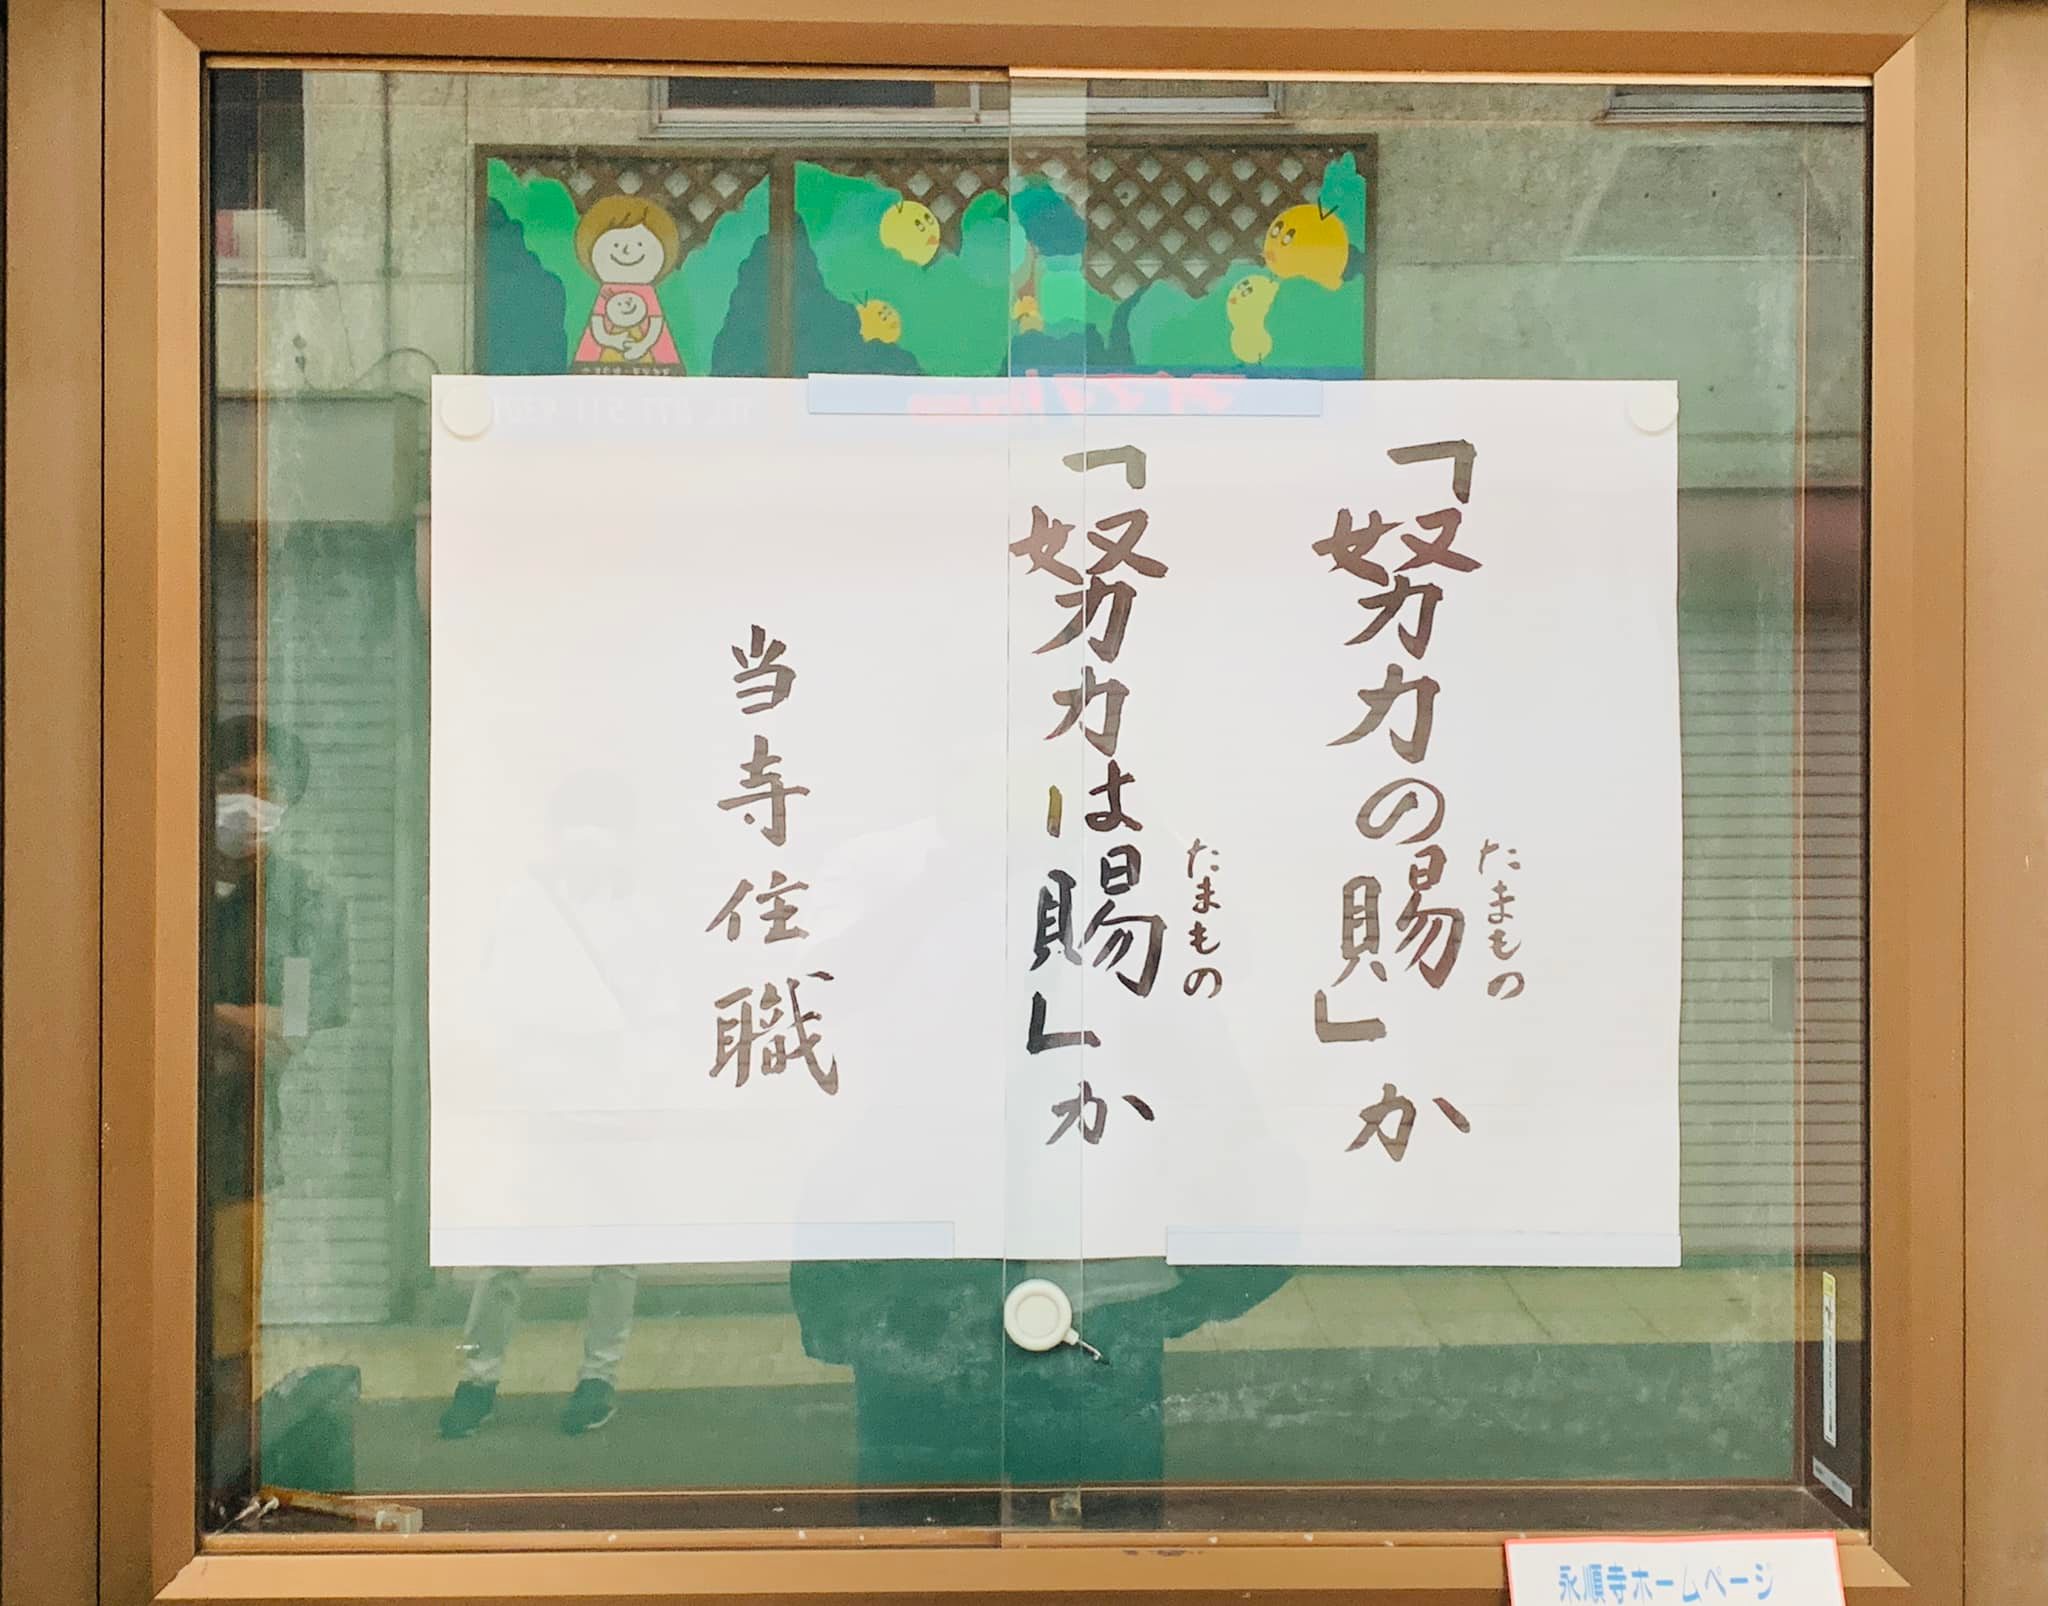 「努力の賜」か
たまもの
「努力は賜」か
たまもの
当寺住職
永順寺ホームページ